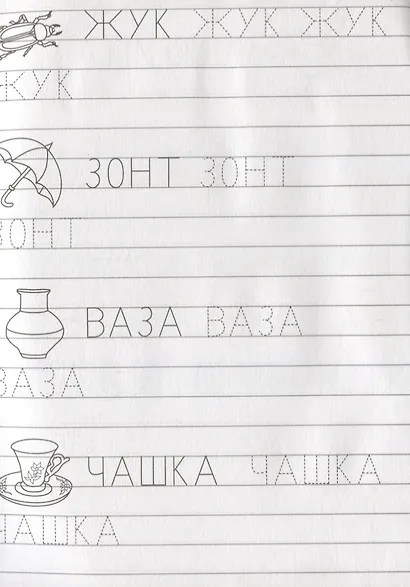 ЖУК ЖУК ЖУК
ЖУК
ЗОНТ ЗОНТ
ЗОНТ
ВАЗА ВАЗА
ВАЗА
ЧАШКА ЧАШКА
ЧАШКА